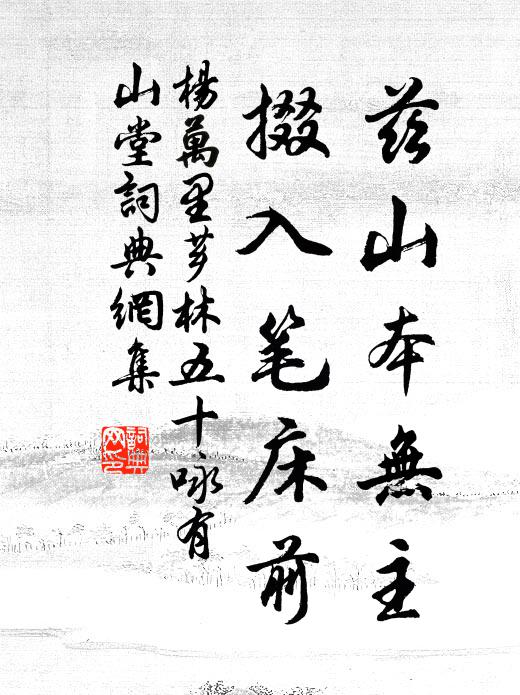 茲山本無主
掇入笔床前
楊萬里芗林五十咏有
山堂詞典網集
詞典
网印